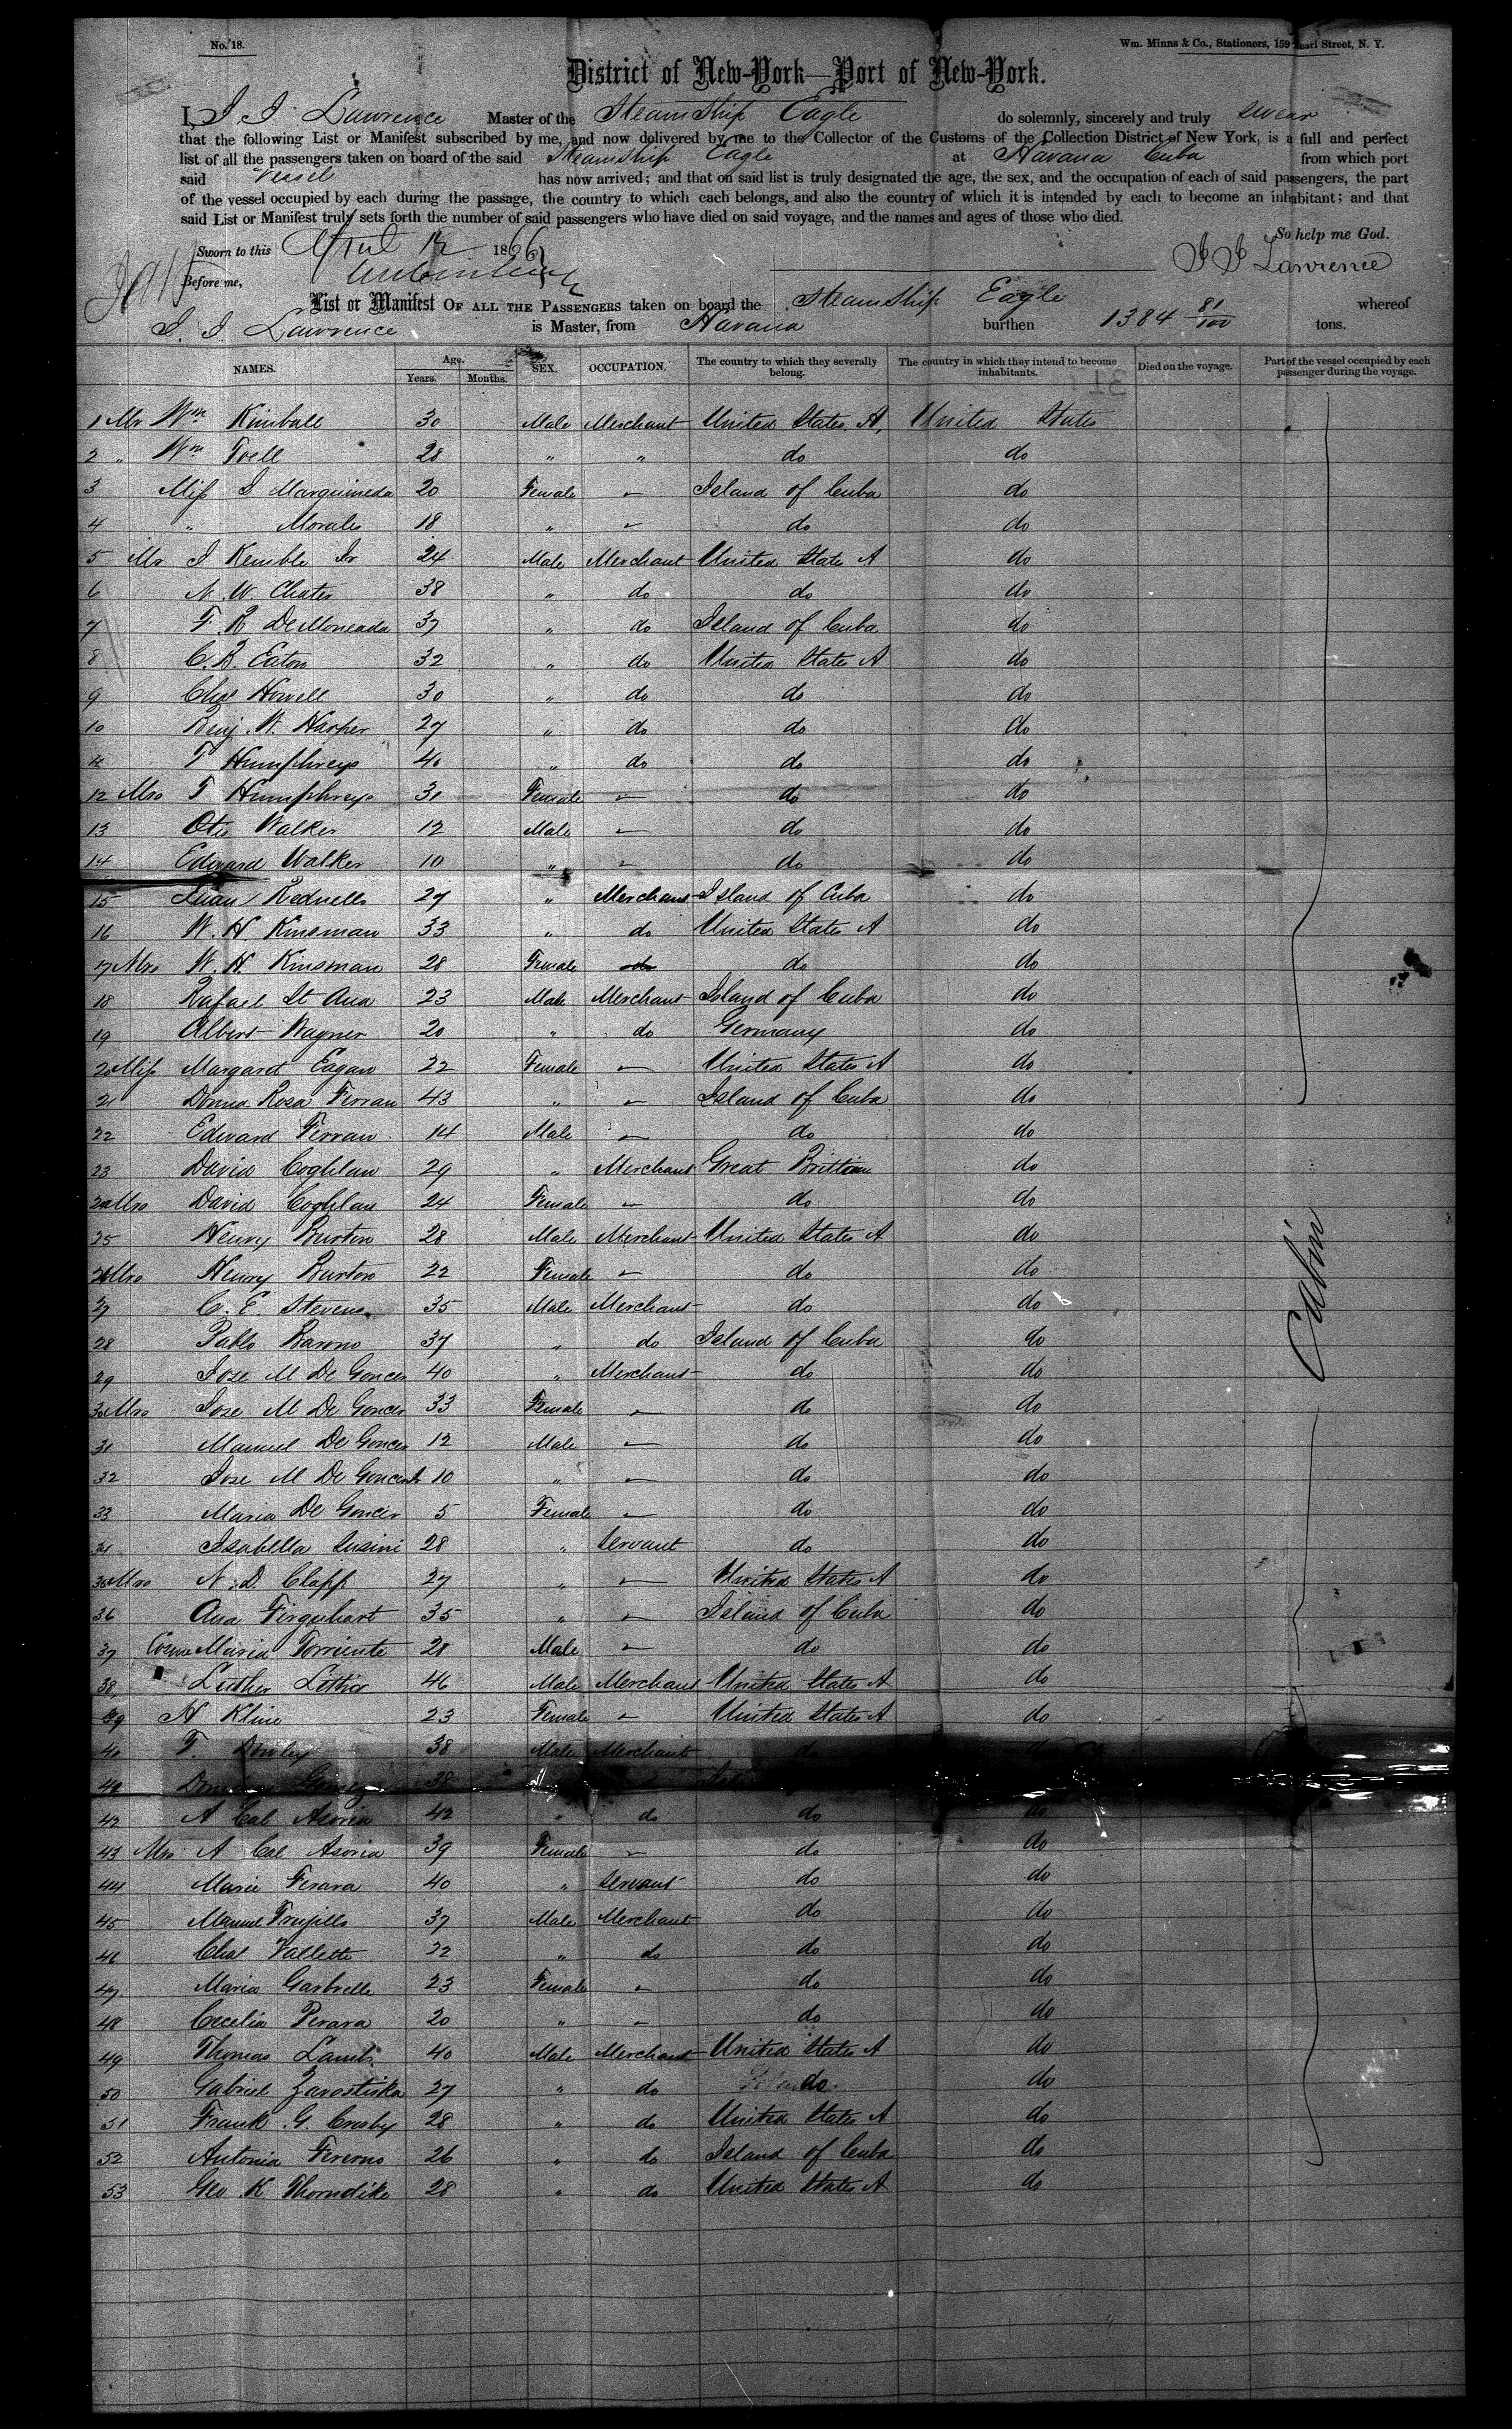 No. 18.
Wm. Minns & Co., Stationers, 159 Pearl Street, N. Y.
District of New-York—Port of New-York.
I, I I Lawrence Master of the Steam Ship Eagle do solemnly, sincerely and truly swear
that the following List or Manifest subscribed by me, and now delivered by me to the Collector of the Customs of the Collection District of New York, is a full and perfect
list of all the passengers taken on board of the said Steamship Eagle at Havana Cuba from which port
said Vessel has now arrived; and that on said list is truly designated the age, the sex, and the occupation of each of said passengers, the part
of the vessel occupied by each during the passage, the country to which each belongs, and also the country of which it is intended by each to become an inhabitant; and that
said List or Manifest truly sets forth the number of said passengers who have died on said voyage, and the names and ages of those who died.
So help me God.
Sworn to this April 12 1866 I I Lawrence
Before me,
List or Manifest OF ALL THE PASSENGERS taken on board the Steam Ship Eagle whereof
I. I. Lawrence is Master, from Havana burthen 1384 81/100 tons.
NAMES. Age. Years. Months. SEX. OCCUPATION. The country to which they severally belong. The country in which they intend to become inhabitants. Died on the voyage. Part of the vessel occupied by each passenger during the voyage.
1 Mr Wm Kimball 30 Male Merchant United States A, United States
2 " Wm Toell 28 " " do do
3 Miss I Marquineda 20 Female — Island of Cuba do
4 " Morales 18 " — do do
5 Mr I Kemble Jr 24 Male Merchant United States A do
6 N. W. Chater 38 " do do do
7 F. R DeMoncada 37 " do Island of Cuba do
8 C. B. Eaton 32 " do United States A do
9 Chas Howell 30 " do do do
10 Benj. W. Harper 27 " do do do
11 T Humphreys 40 " do do do
12 Mrs T Humphreys 31 Female — do do
13 Otis Walker 12 Male — do do
14 Edward Walker 10 " — do do
15 Juan Rednells 27 " Merchant Island of Cuba do
16 W. H. Kinsman 33 " do United States A do
17 Mrs W. H. Kinsman 28 Female do do do
18 Rafael St Ana 23 Male Merchant Island of Cuba do
19 Albert Wagner 20 " do Germany do
20 Miss Margaret Eagan 22 Female — United States A do
21 Donna Rosa Ferran 43 " — Island of Cuba do
22 Edward Ferran 14 Male — do do
23 David Coghlan 29 " Merchant Great Brittian do
24 Mrs David Coghlan 24 Female — do do
25 Henry Burton 28 Male Merchant United States A do
26 Mrs Henry Burton 22 Female — do do
27 C. E. Stevens 35 Male Merchant do do
28 Pablo Barono 37 " do Island of Cuba do
29 Jose M De Goncer 40 " Merchant do do
30 Mrs Jose M De Goncer 33 Female — do do
31 Manuel De Goncer 12 Male — do do
32 Jose M De Goncer 10 " — do do
33 Maria De Goncer 5 Female — do do
34 Isabella Susini 28 " Servant do do
35 Mrs N. D. Clapp 27 " — United States A do
36 Ana Firguhart 35 " — Island of Cuba do
37 Cosme Maria Torriente 28 Male — do do
38 Luther Lothia 46 Male Merchant United States A do
39 H Kline 23 Female — United States A do
40 F. Dowley 38 Male Merchant do do
41 38
42 A Cal Asoria 42 " do do do
43 Mrs A Cal Asoria 39 Female — do do
44 Marie Ferara 40 " Servant do do
45 Manuel Trujillo 37 Male Merchant do do
46 Chas Vallette 22 " do do do
47 Maria Garbrelle 23 Female — do do
48 Cecelia Perara 20 " — do do
49 Thomas Lamb 40 Male Merchant United States A do
50 Gabriel Zarostiska 27 " do do do
51 Frank G. Crosby 28 " do United States A do
52 Antonia Fererno 26 " do Island of Cuba do
53 Geo K. Thorndike 28 " do United States A do
Cabin